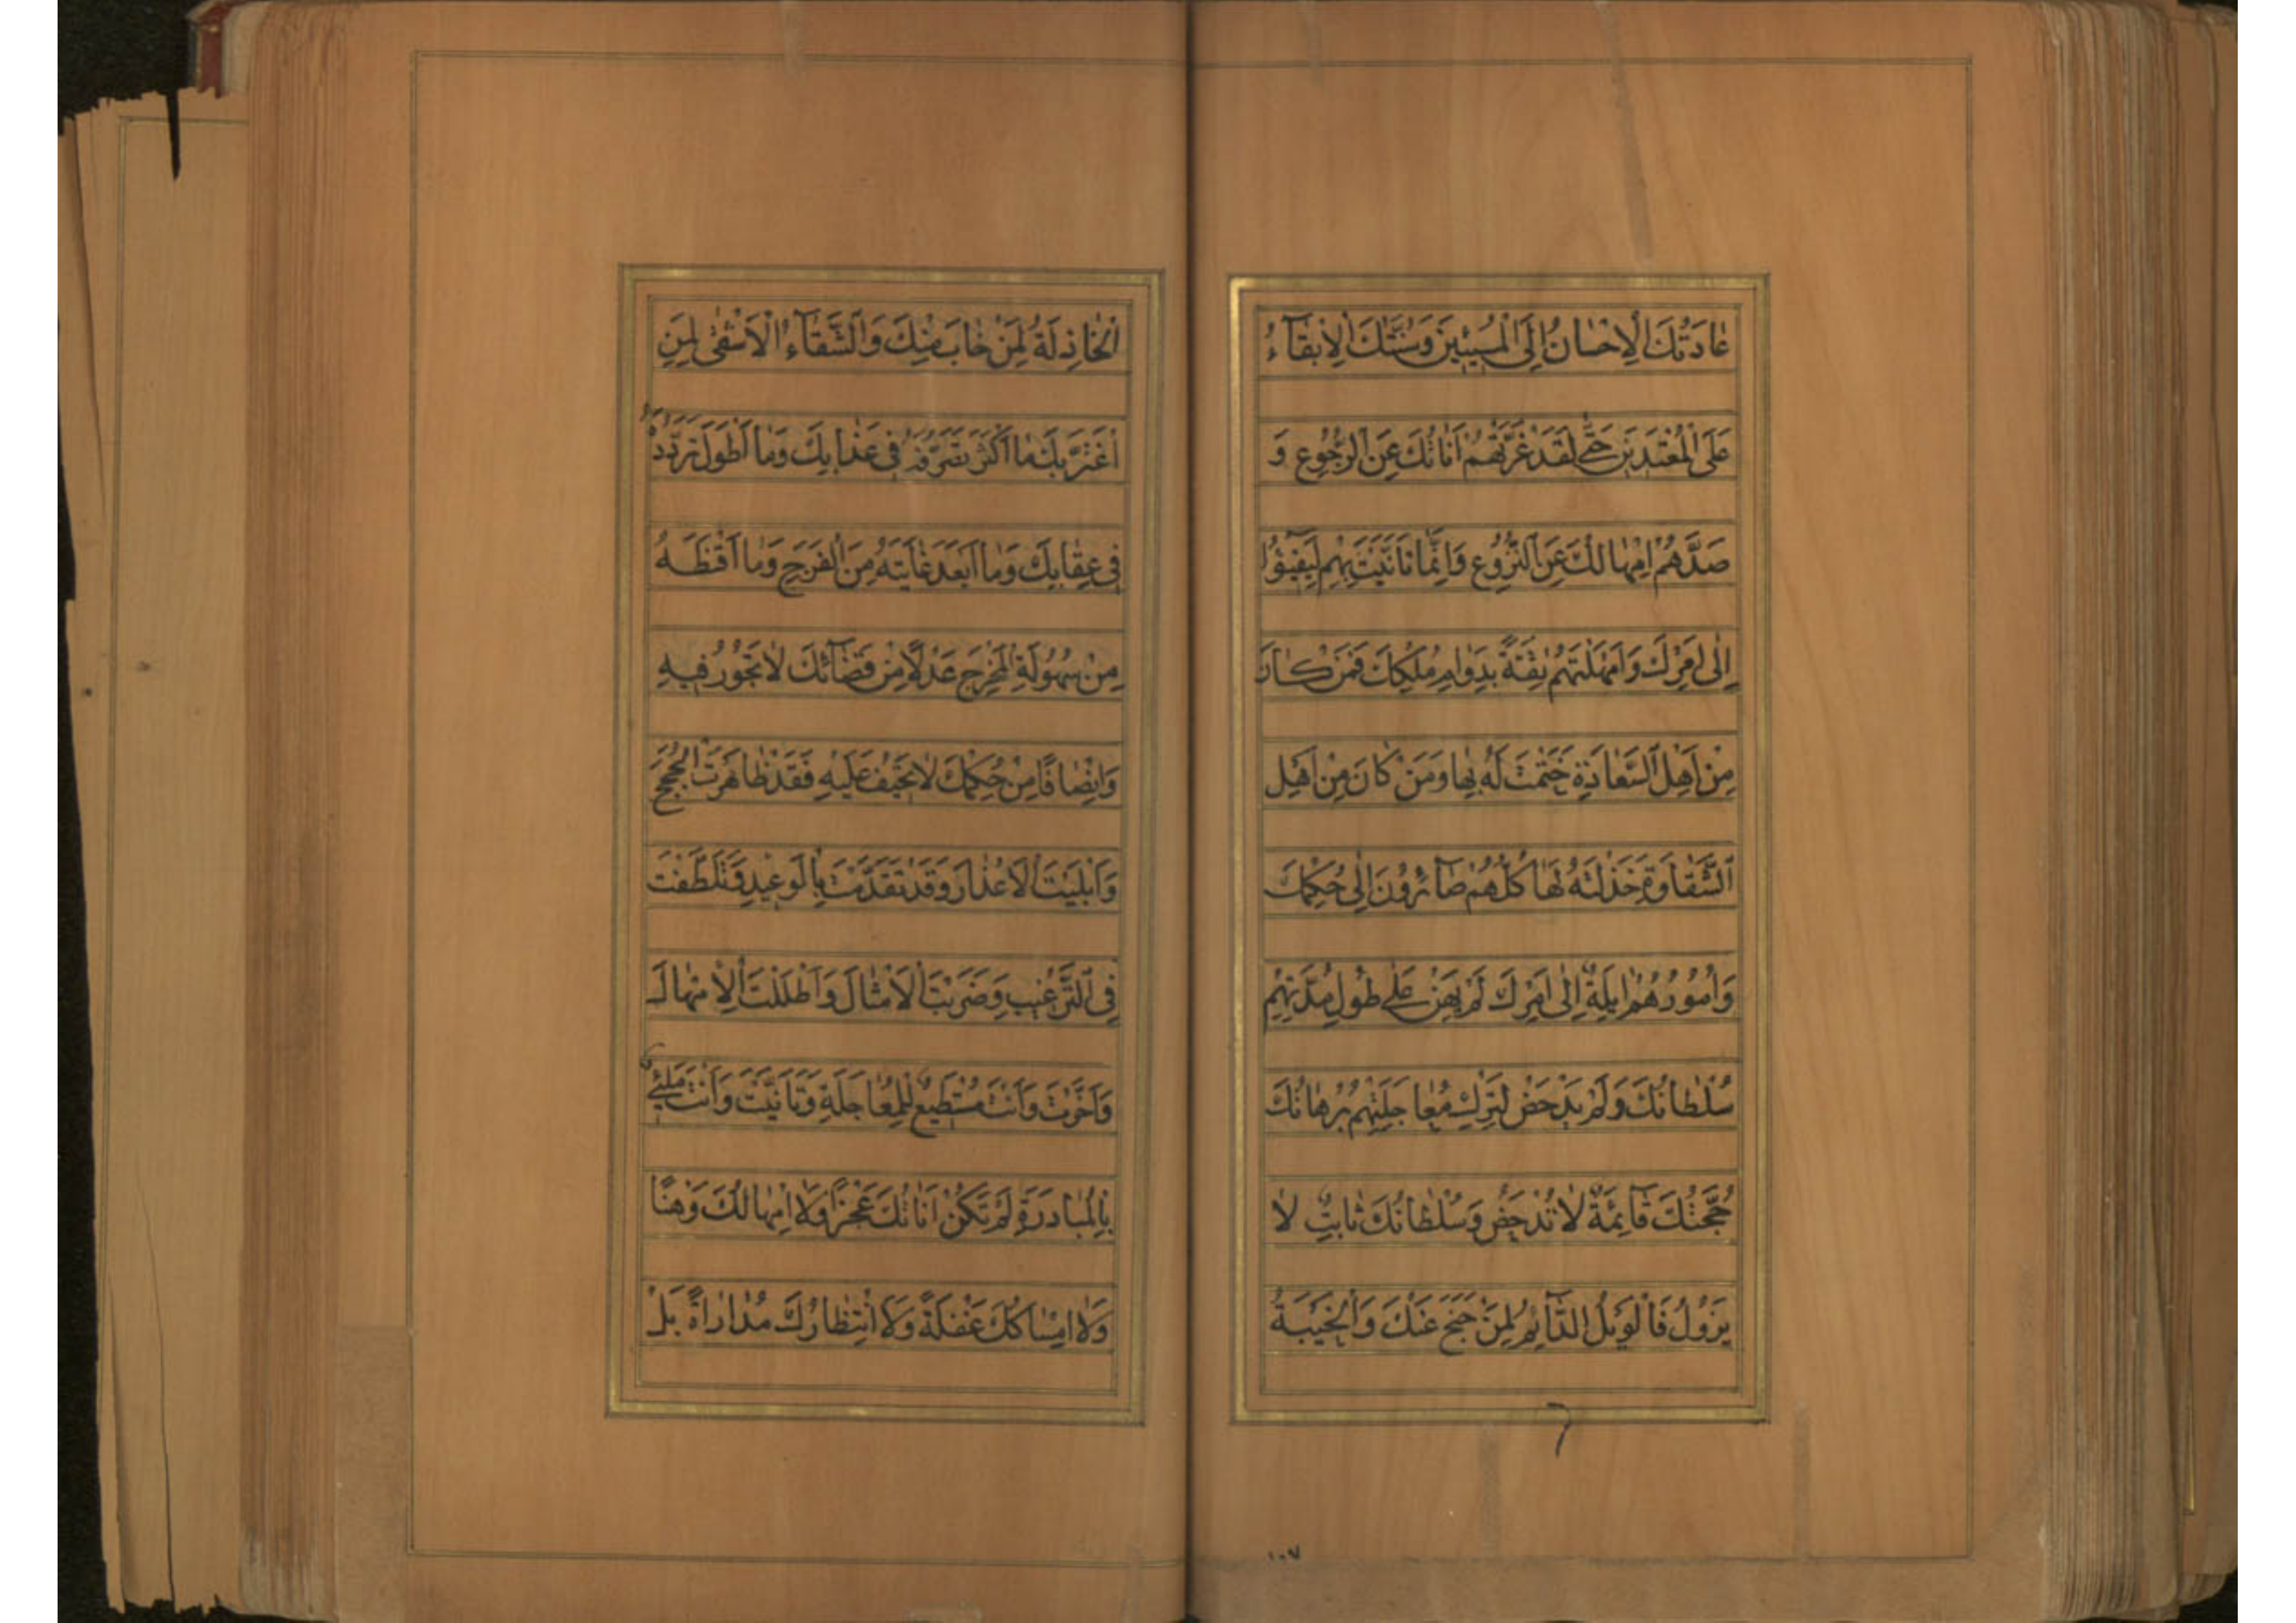 عَادَتُكَ الْاِحْسَانُ اِلَى الْمُسِيئِينَ وَسُنَّتُكَ الْاِبْقَآءُ
عَلَى الْمُعْتَدِينَ حَتّٰى لَقَدْ غَرَّتْهُمْ اَنَاتُكَ عَنِ الرُّجُوعِ وَ
صَدَّهُمْ اِمْهَالُكَ عَنِ النُّزُوعِ وَاِنَّمَا تَاَنَّيْتَ بِهِمْ لِيَفِيئُوا
اِلٰى اَمْرِكَ وَاَمْهَلْتَهُمْ ثِقَةً بِدَوَامِ مُلْكِكَ فَمَنْ كَانَ
مِنْ اَهْلِ السَّعَادَةِ خَتَمْتَ لَهُ بِهَا وَمَنْ كَانَ مِنْ اَهْلِ
الشَّقَاوَةِ خَذَلْتَهُ لَهَا كُلُّهُمْ صَآئِرُونَ اِلٰى حُكْمِكَ
وَاُمُورُهُمْ اٰيِلَةٌ اِلٰى اَمْرِكَ لَمْ يَهِنْ عَلٰى طُولِ مُدَّتِهِمْ
سُلْطَانُكَ وَلَمْ يَدْحَضْ لِتَرْكِ مُعَاجَلَتِهِمْ بُرْهَانُكَ
حُجَّتُكَ قَآئِمَةٌ لَا تُدْحَضُ وَسُلْطَانُكَ ثَابِتٌ لَا
يَزُولُ فَالْوَيْلُ الدَّآئِمُ لِمَنْ جَنَحَ عَنْكَ وَالْخَيْبَةُ
١٠٧
الْخَاذِلَةُ لِمَنْ خَابَ مِنْكَ وَالشَّقَآءُ الْاَشْقٰى لِمَنِ
اغْتَرَّ بِكَ مَا اَكْثَرَ تَصَرُّفَهُ فِى عَذَابِكَ وَمَا اَطْوَلَ تَرَدُّدَهُ
فِى عِقَابِكَ وَمَا اَبْعَدَ غَايَتَهُ مِنَ الْفَرَجِ وَمَا اَقْنَطَهُ
مِنْ سُهُولَةِ الْمَخْرَجِ عَدْلًا مِنْ قَضَآئِكَ لَا تَجُورُ فِيهِ
وَاِنْصَافًا مِنْ حُكْمِكَ لَا تَحِيفُ عَلَيْهِ فَقَدْ ظَاهَرْتَ الْحُجَجَ
وَاَبْلَيْتَ الْاَعْذَارَ وَقَدْ تَقَدَّمْتَ بِالْوَعِيدِ وَتَلَطَّفْتَ
فِى التَّرْغِيبِ وَضَرَبْتَ الْاَمْثَالَ وَاَطَلْتَ الْاِمْهَالَ
وَاَخَّرْتَ وَاَنْتَ مُسْتَطِيعٌ لِلْمُعَاجَلَةِ وَتَاَنَّيْتَ وَاَنْتَ مَلِئٌ
بِالْمُبَادَرَةِ لَمْ تَكُنْ اَنَاتُكَ عَجْزًا وَلَا اِمْهَالُكَ وَهْنًا
وَلَا اِمْسَاكُكَ غَفْلَةً وَلَا انْتِظَارُكَ مُدَارَاةً بَلْ